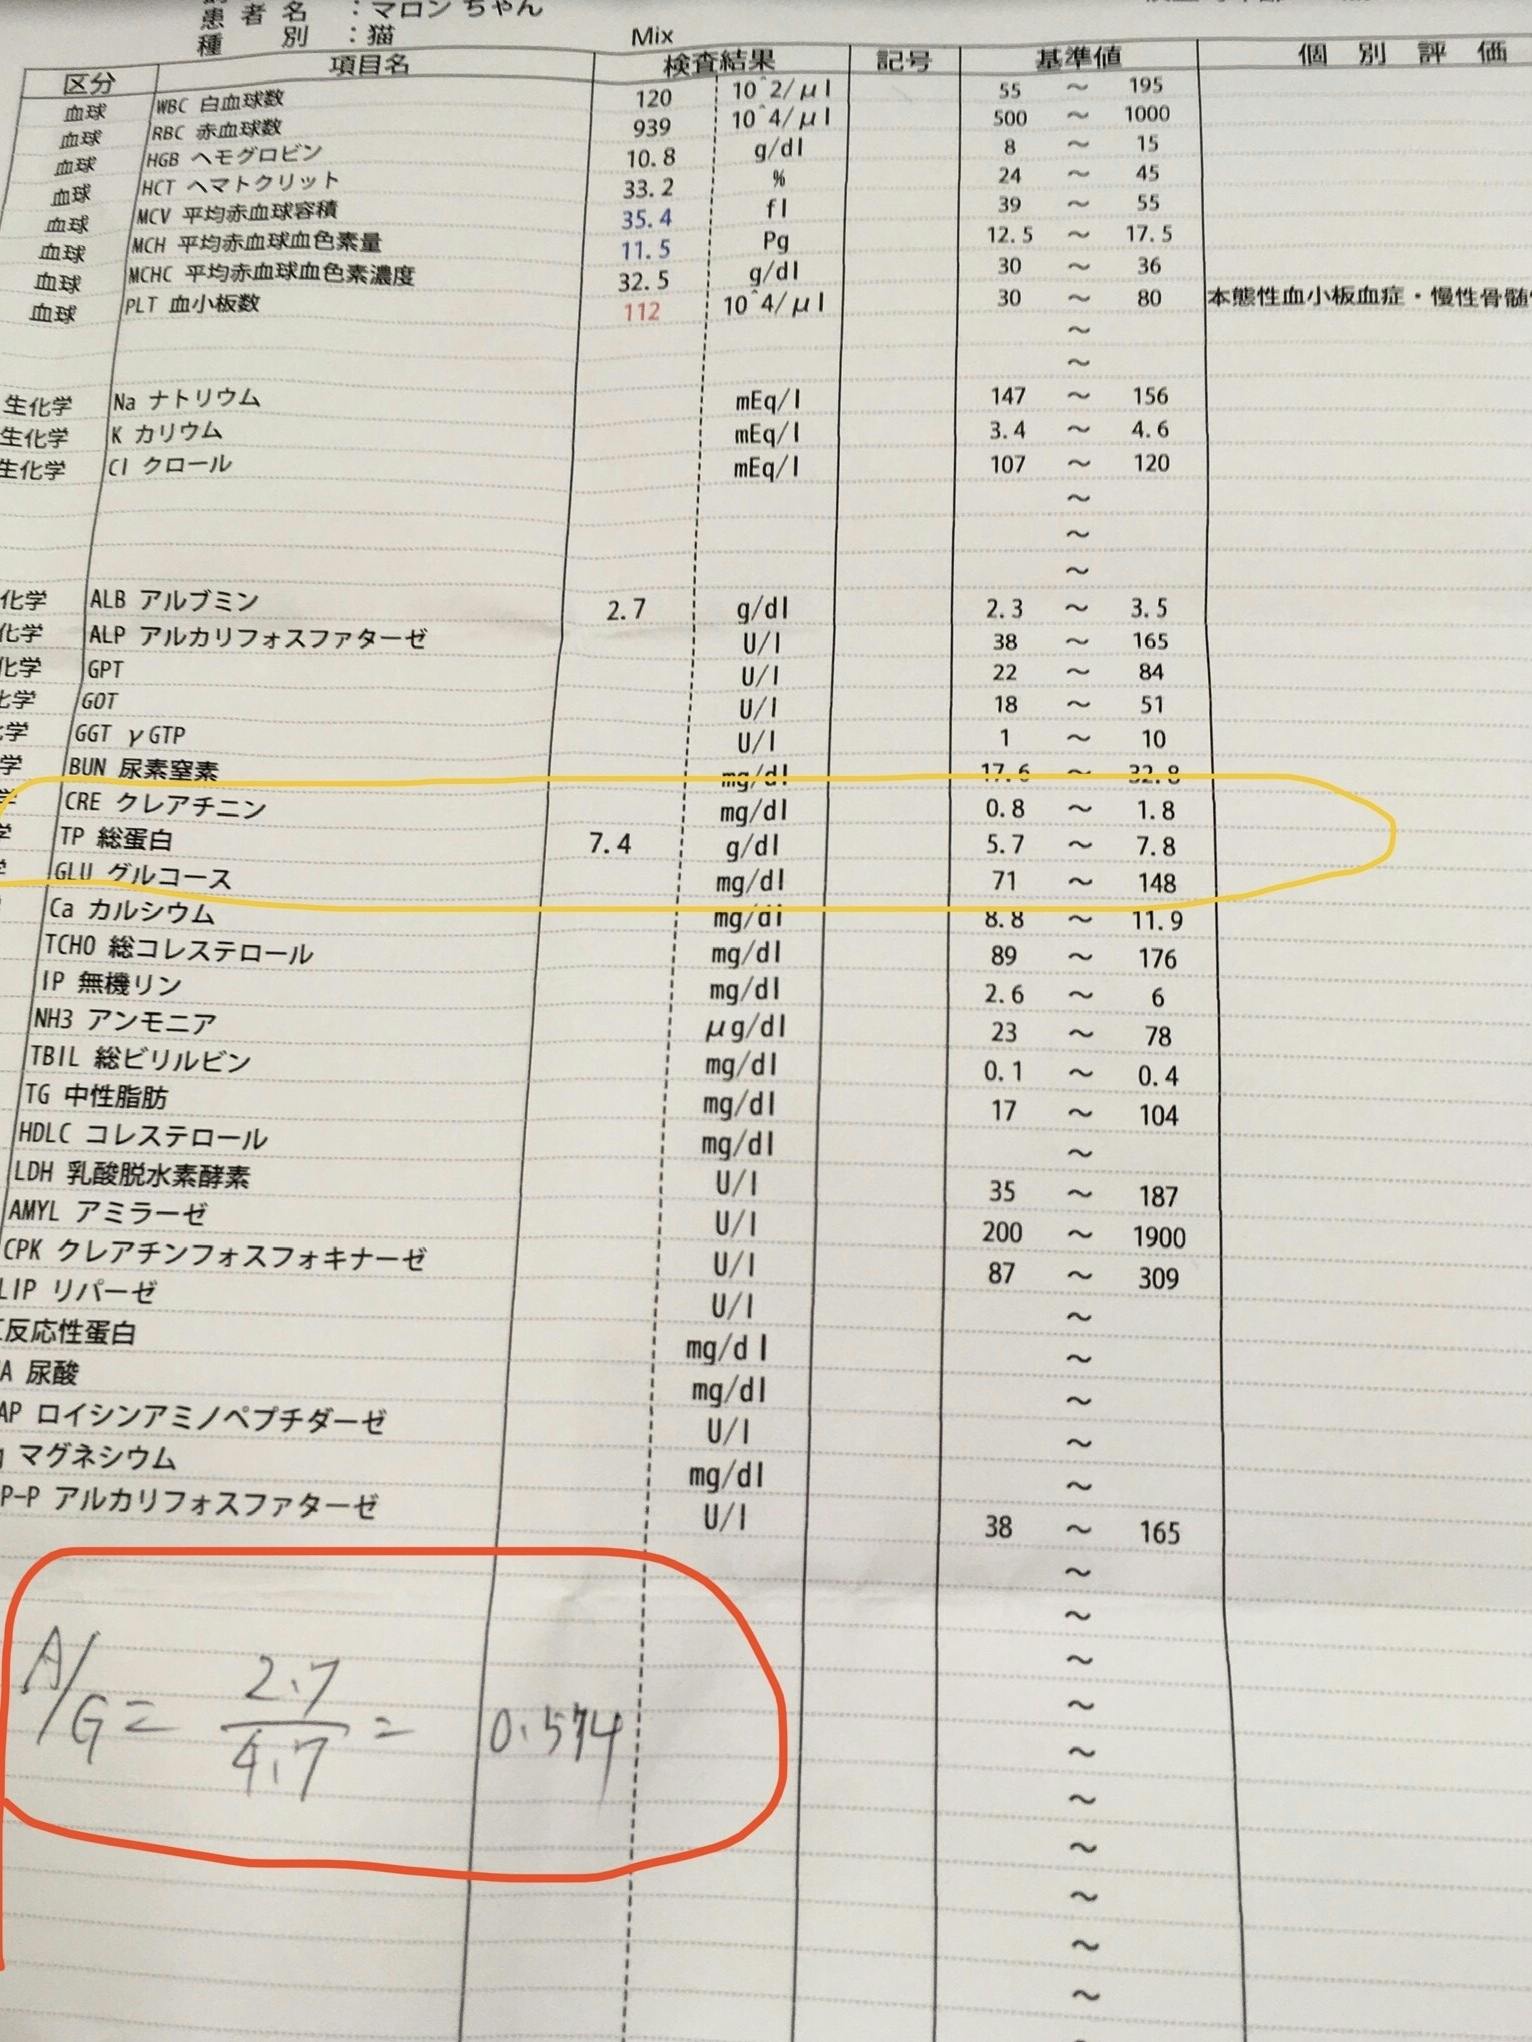 患者名 ：マロン ちゃん
種 別 ：猫 Mix
区分 項目名 検査結果 記号 基準値 個 別 評 価
血球 WBC 白血球数 120 10^2/μl 55 ～ 195
血球 RBC 赤血球数 939 10^4/μl 500 ～ 1000
血球 HGB ヘモグロビン 10.8 g/dl 8 ～ 15
血球 HCT ヘマトクリット 33.2 % 24 ～ 45
血球 MCV 平均赤血球容積 35.4 fl 39 ～ 55
血球 MCH 平均赤血球血色素量 11.5 Pg 12.5 ～ 17.5
血球 MCHC 平均赤血球血色素濃度 32.5 g/dl 30 ～ 36
血球 PLT 血小板数 112 10^4/μl 30 ～ 80 本態性血小板血症・慢性骨髄
～
～
生化学 Na ナトリウム mEq/l 147 ～ 156
生化学 K カリウム mEq/l 3.4 ～ 4.6
生化学 Cl クロール mEq/l 107 ～ 120
～
～
～
化学 ALB アルブミン 2.7 g/dl 2.3 ～ 3.5
化学 ALP アルカリフォスファターゼ U/l 38 ～ 165
化学 GPT U/l 22 ～ 84
化学 GOT U/l 18 ～ 51
学 GGT γGTP U/l 1 ～ 10
学 BUN 尿素窒素 mg/dl 17.6 ～ 32.8
学 CRE クレアチニン mg/dl 0.8 ～ 1.8
学 TP 総蛋白 7.4 g/dl 5.7 ～ 7.8
GLU グルコース mg/dl 71 ～ 148
Ca カルシウム mg/dl 8.8 ～ 11.9
TCHO 総コレステロール mg/dl 89 ～ 176
IP 無機リン mg/dl 2.6 ～ 6
NH3 アンモニア μg/dl 23 ～ 78
TBIL 総ビリルビン mg/dl 0.1 ～ 0.4
TG 中性脂肪 mg/dl 17 ～ 104
HDLC コレステロール mg/dl ～
LDH 乳酸脱水素酵素 U/l 35 ～ 187
AMYL アミラーゼ U/l 200 ～ 1900
CPK クレアチンフォスフォキナーゼ U/l 87 ～ 309
LIP リパーゼ U/l ～
反応性蛋白 mg/dl ～
A 尿酸 mg/dl ～
AP ロイシンアミノペプチダーゼ U/l ～
マグネシウム mg/dl ～
P-P アルカリフォスファターゼ U/l 38 ～ 165
～
～
～
～
～
～
～
～
～
～
A/G = 2.7/4.7 = 0.574